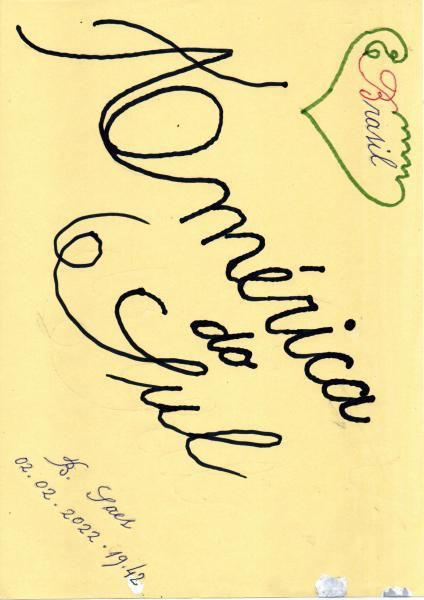 América
do
Sul
Brasil
B. Saes
02.02.2022.19.42